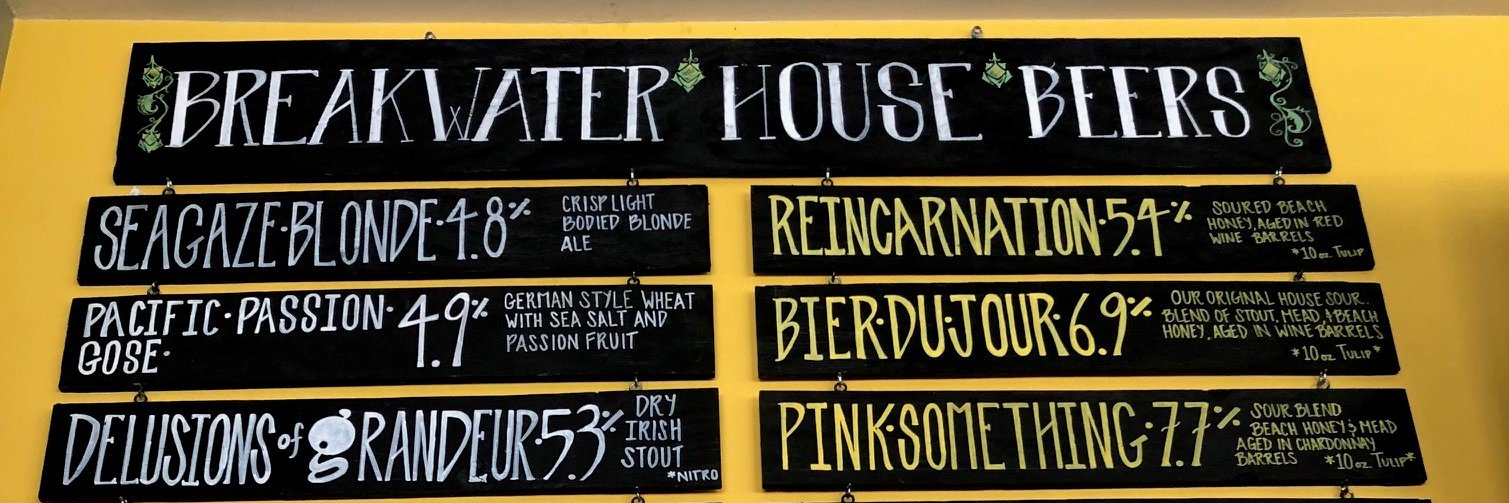 BREAKWATER HOUSE BEERS
SEAGAZE·BLONDE·4.8%
CRISP LIGHT
BODIED BLONDE
ALE
PACIFIC·PASSION·
GOSE·
4.9%
GERMAN STYLE WHEAT
WITH SEA SALT AND
PASSION FRUIT
DELUSIONS of gRANDEUR·5.3%
DRY
IRISH
STOUT
*NITRO
REINCARNATION·5.4%
SOURED BEACH
HONEY, AGED IN RED
WINE BARRELS
*10 oz TULIP
BIER·DU·JOUR·6.9%
OUR ORIGINAL HOUSE SOUR.
BLEND OF STOUT, MEAD, & BEACH
HONEY, AGED IN WINE BARRELS
*10 oz TULIP*
PINK·SOMETHING·7.7%
SOUR BLEND
BEACH HONEY & MEAD
AGED IN CHARDONNAY
BARRELS *10 oz TULIP*